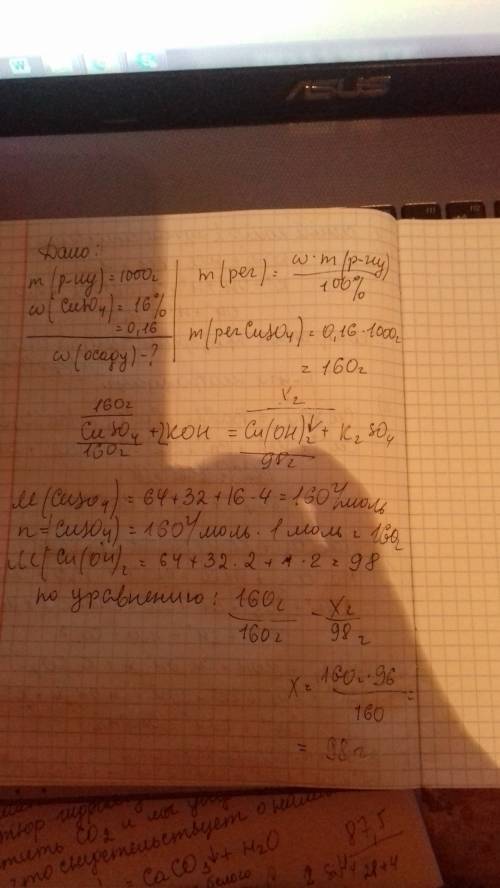 ASUS
Дано:
m(р-ну) = 1000г
ω(CuSO4) = 16%
= 0,16
ω(осаду) - ?
m(рег) = ω · m(р-ну) / 100%
m(рег CuSO4) = 0,16 · 1000г
= 160г
160г Xг
CuSO4 + 2KOH = Cu(OH)2↓ + K2SO4
160г 98г
M(CuSO4) = 64 + 32 + 16 · 4 = 160 г/моль
n = CuSO4) = 160 г/моль · 1 моль = 160г
M(Cu(OH)2 = 64 + 32 · 2 + 1 · 2 = 98
по уравнению: 160г / 160г - Xг / 98г
X = 160г · 96 / 160 =
= 98г
CO2 и мы
свидетельствует о
= CaCO3↓ + H2O
87,5
28+4